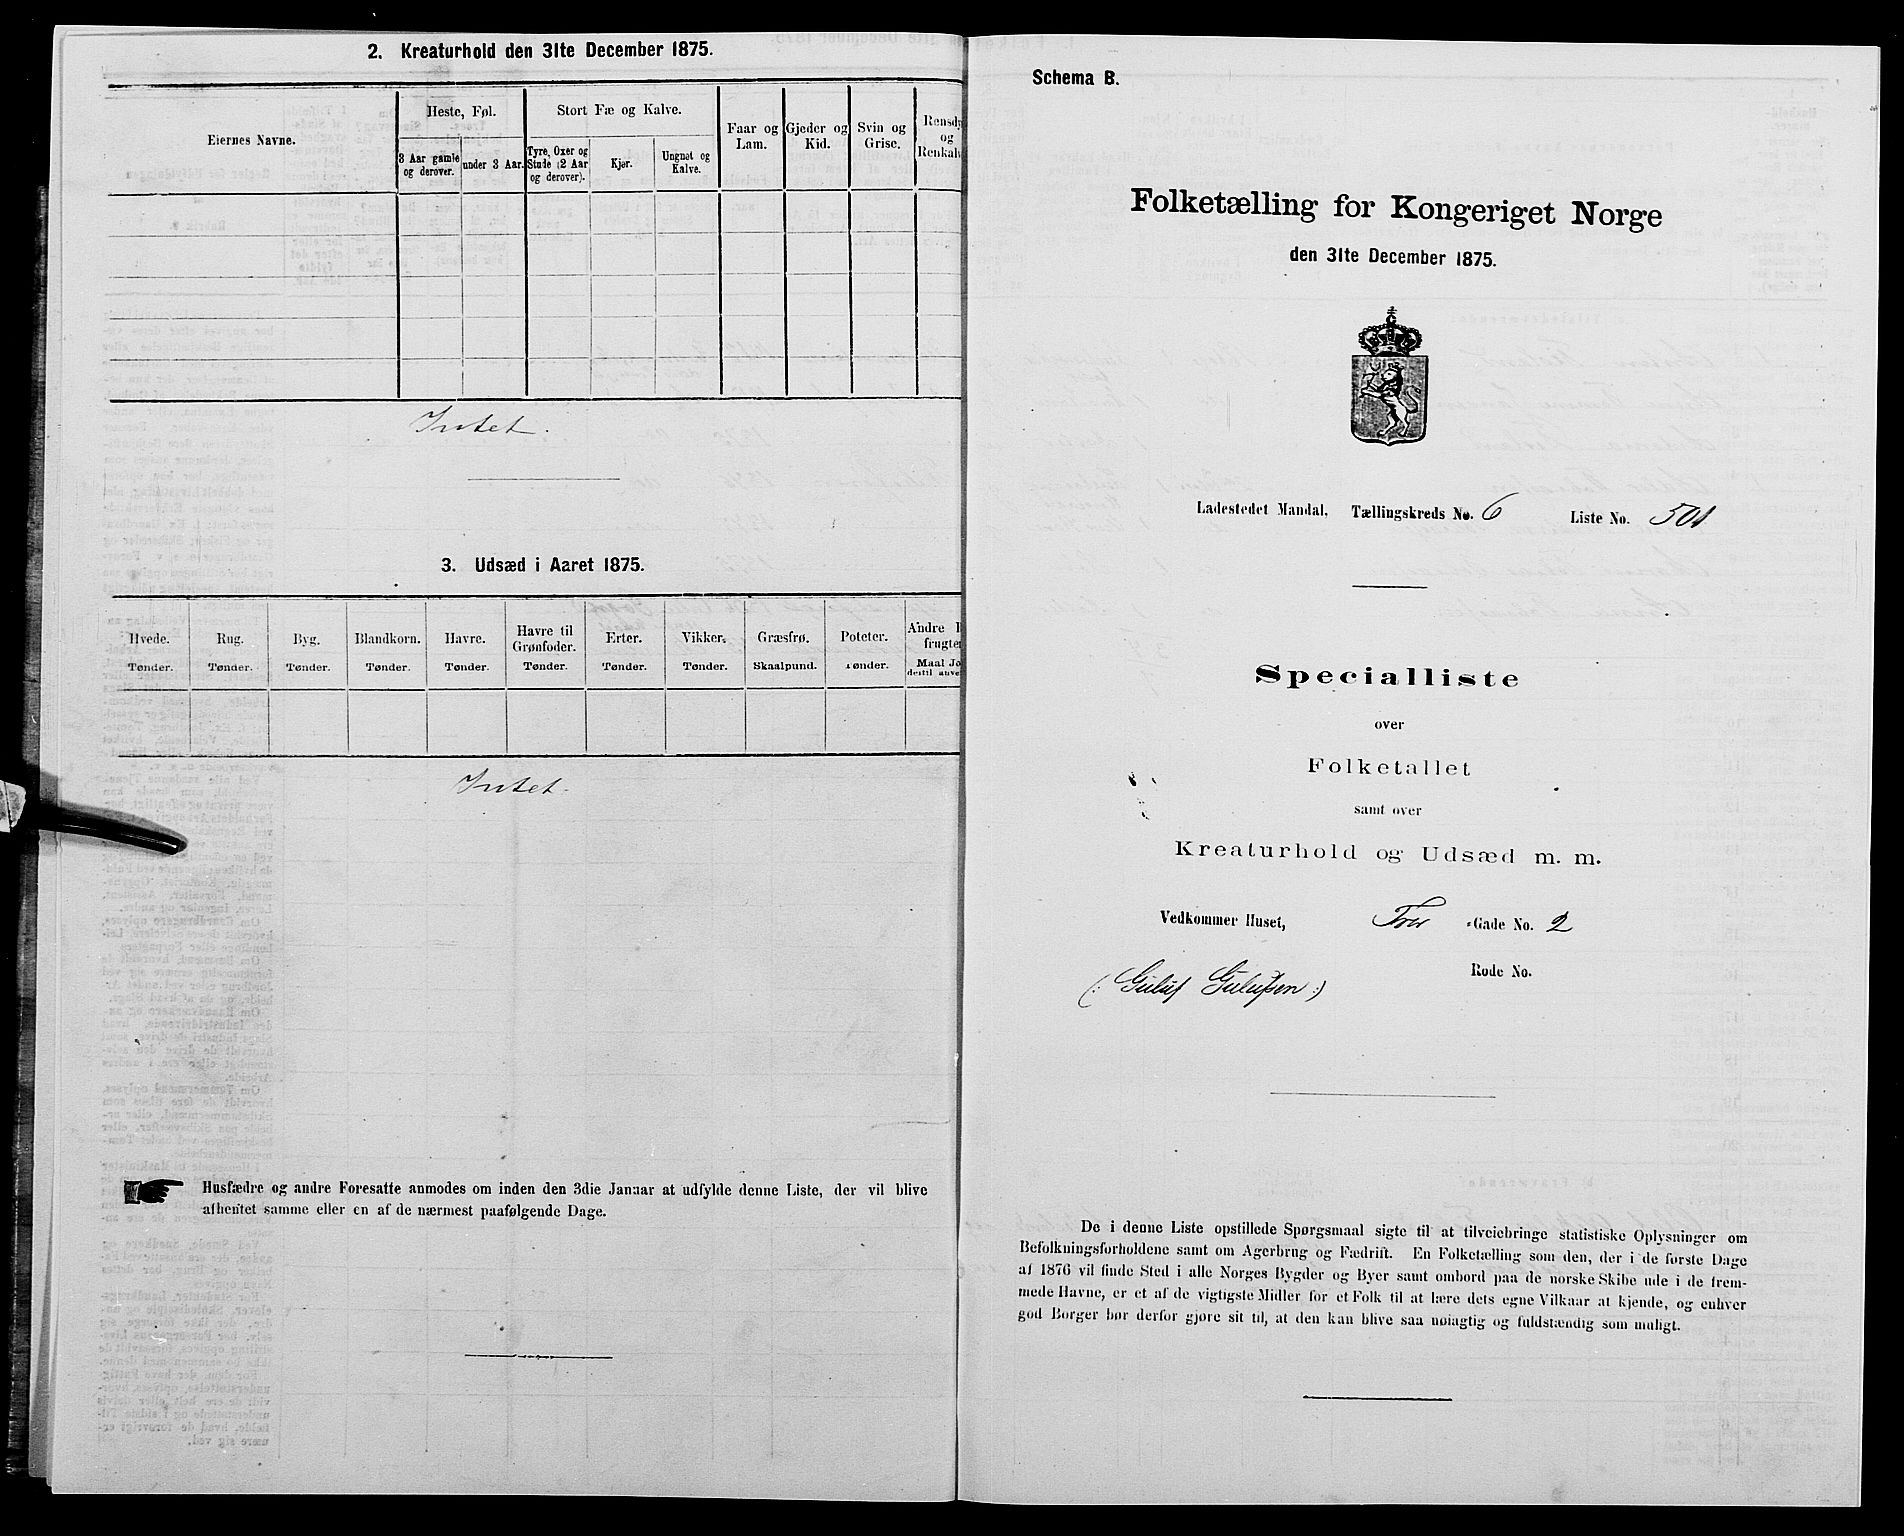 2. Kreaturhold den 31te December 1875.
Eiernes Navne.
Heste, Føl.
Stort Fæ og Kalve.
Faar og Lam.
Gjeder og Kid.
Svin og Grise.
Rensdy
og
Renkalv
3 Aar gamle og derover.
under 3 Aar.
Tyre, Oxer og Stude (2 Aar og derover).
Kjør.
Ungnøt og Kalve.
Intet.
3. Udsæd i Aaret 1875.
Hvede.
Tønder.
Rug.
Tønder.
Byg.
Tønder.
Blandkorn.
Tønder.
Havre.
Tønder.
Havre til Grønfoder.
Tønder.
Erter.
Tønder.
Vikker.
Tønder.
Græsfrø.
Skaalpund.
Poteter.
Tønder.
Andre
frugter
Maal Jo
dertil anve
Intet.
Husfædre og andre Foresatte anmodes om inden den 3die Januar at udfylde denne Liste, der vil blive
afhentet samme eller en af de nærmest paafølgende Dage.
Schema B.
Folketælling for Kongeriget Norge
den 31te December 1875.
Ladestedet Mandal. Tællingskreds No. 6 Liste No. 501
Specialliste
over
Folketallet
samt over
Kreaturhold og Udsæd m. m.
Vedkommer Huset, -Gade No. 2
Rode No.
(: Guluf Gulufsen :)
De i denne Liste opstillede Spørgsmaal sigte til at tilveiebringe statistiske Oplysninger om
Befolkningsforholdene samt om Agerbrug og Fædrift. En Folketælling som den, der i de første Dage
af 1876 vil finde Sted i alle Norges Bygder og Byer samt ombord paa de norske Skibe ude i de frem-
mede Havne, er et af de vigtigste Midler for et Folk til at lære dets egne Vilkaar at kjende, og enhver
god Borger bør derfor gjøre sit til, at den kan blive saa nøiagtig og fuldstændig som muligt.